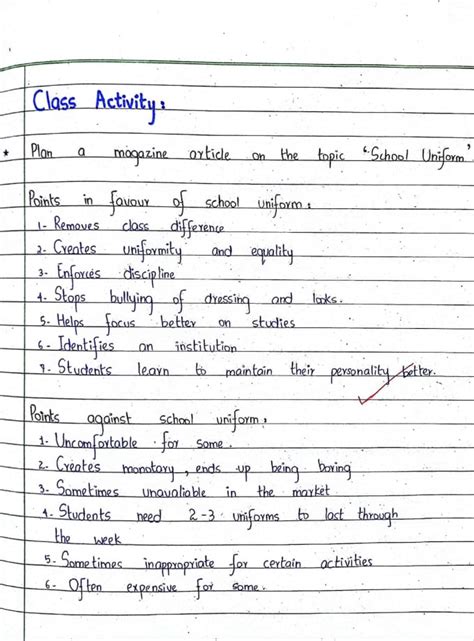 Class Activity:
* Plan a magazine article on the topic "School Uniform"
Points in favour of school uniform:
1- Removes class difference
2- Creates uniformity and equality
3- Enforces discipline
4- Stops bullying of dressing and looks.
5- Helps focus better on studies
6- Identifies an institution
7- Students learn to maintain their personality better.
Points against school uniform:
1- Uncomfortable for some.
2- Creates monotary, ends up being boring
3- Sometimes unavaliable in the market
4- Students need 2-3 uniforms to last through
the week
5- Sometimes inappropriate for certain activities
6- Often expensive for some.